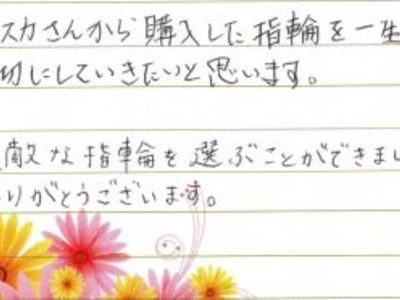 スカさんから購入した指輪を一生
切にしていきたいと思います。
敵な指輪を選ぶことができまし
りがとうございます。